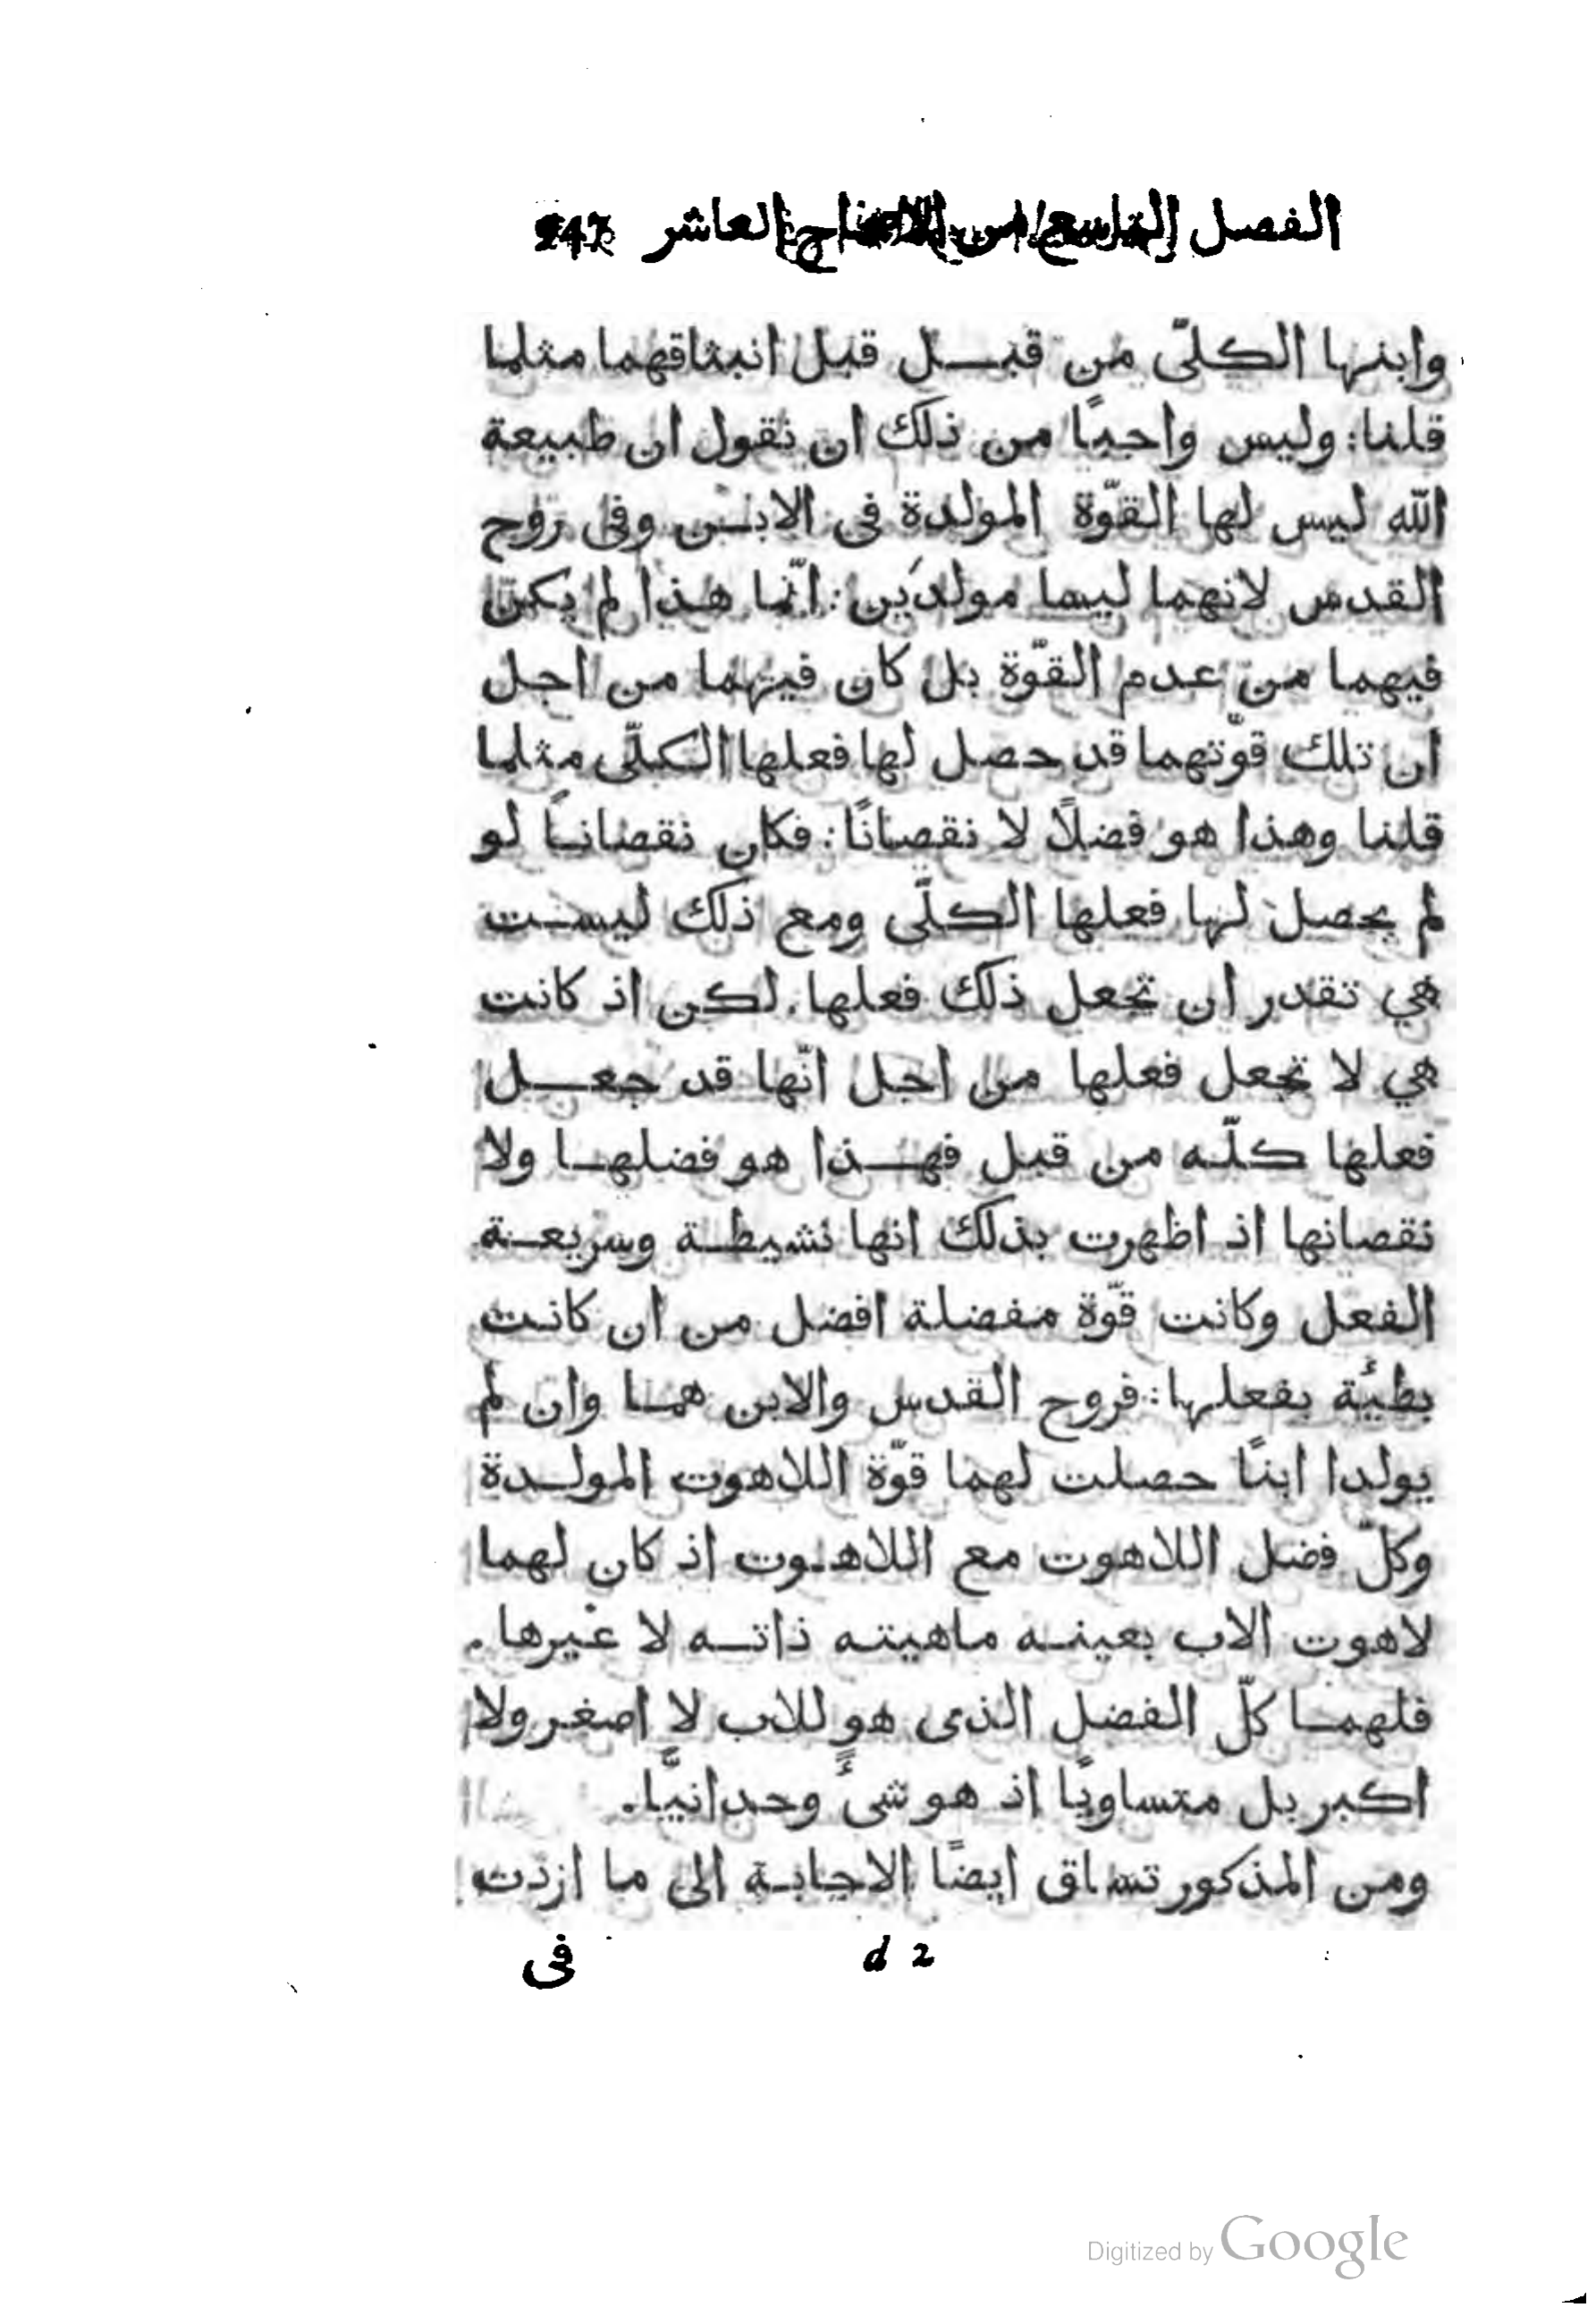 الفصل التاسع من الاحتجاج العاشر 247
وابنها الكلّى من قبـل قبل انبثاقهما مثلما
قلنا: وليس واجبًا من ذلك ان نقول ان طبيعة
الله ليس لها القوّة المولدة فى الابـن وفى روح
القدس لانهما ليسا مولدَين: انّما هذا لم يكن
فيهما من عدم القوّة بل كان فيهما من اجل
ان تلك قوّتهما قد حصل لها فعلها الكلّى مثلما
قلنا وهذا هو فضلًا لا نقصانًا: فكان نقصانـًا لو
لم يحصل لها فعلها الكلّى ومع ذلك ليسـت
هي تقدر ان تجعل ذلك فعلها. لكن اذ كانت
هي لا تجعل فعلها من اجل انّها قد جعــل
فعلها كلّـه من قبل فهــذا هو فضلهـا ولا
نقصانها اذ اظهرت بذلك انها نشيطـة وسريعـة
الفعل وكانت قوّة مفضلة افضل من ان كانـت
بطيئة بفعلها: فروح القدس والابن همـا وان لم
يولدا ابنًا حصلت لهما قوّة اللاهوت المولـدة
وكلّ فضل اللاهوت مع اللاهـوت اذ كان لهما
لاهوت الاب بعينـه ماهيتـه ذاتـه لا غيرها.
فلهمـا كلّ الفضل الذى هو للاب لا اصغر ولا
اكبر بل متساويًا اذ هو شىءً وحدانيًّا.
ومن المذكور تساق ايضًا الاجابـة الى ما اردت
d 2
فى
Digitized by Google